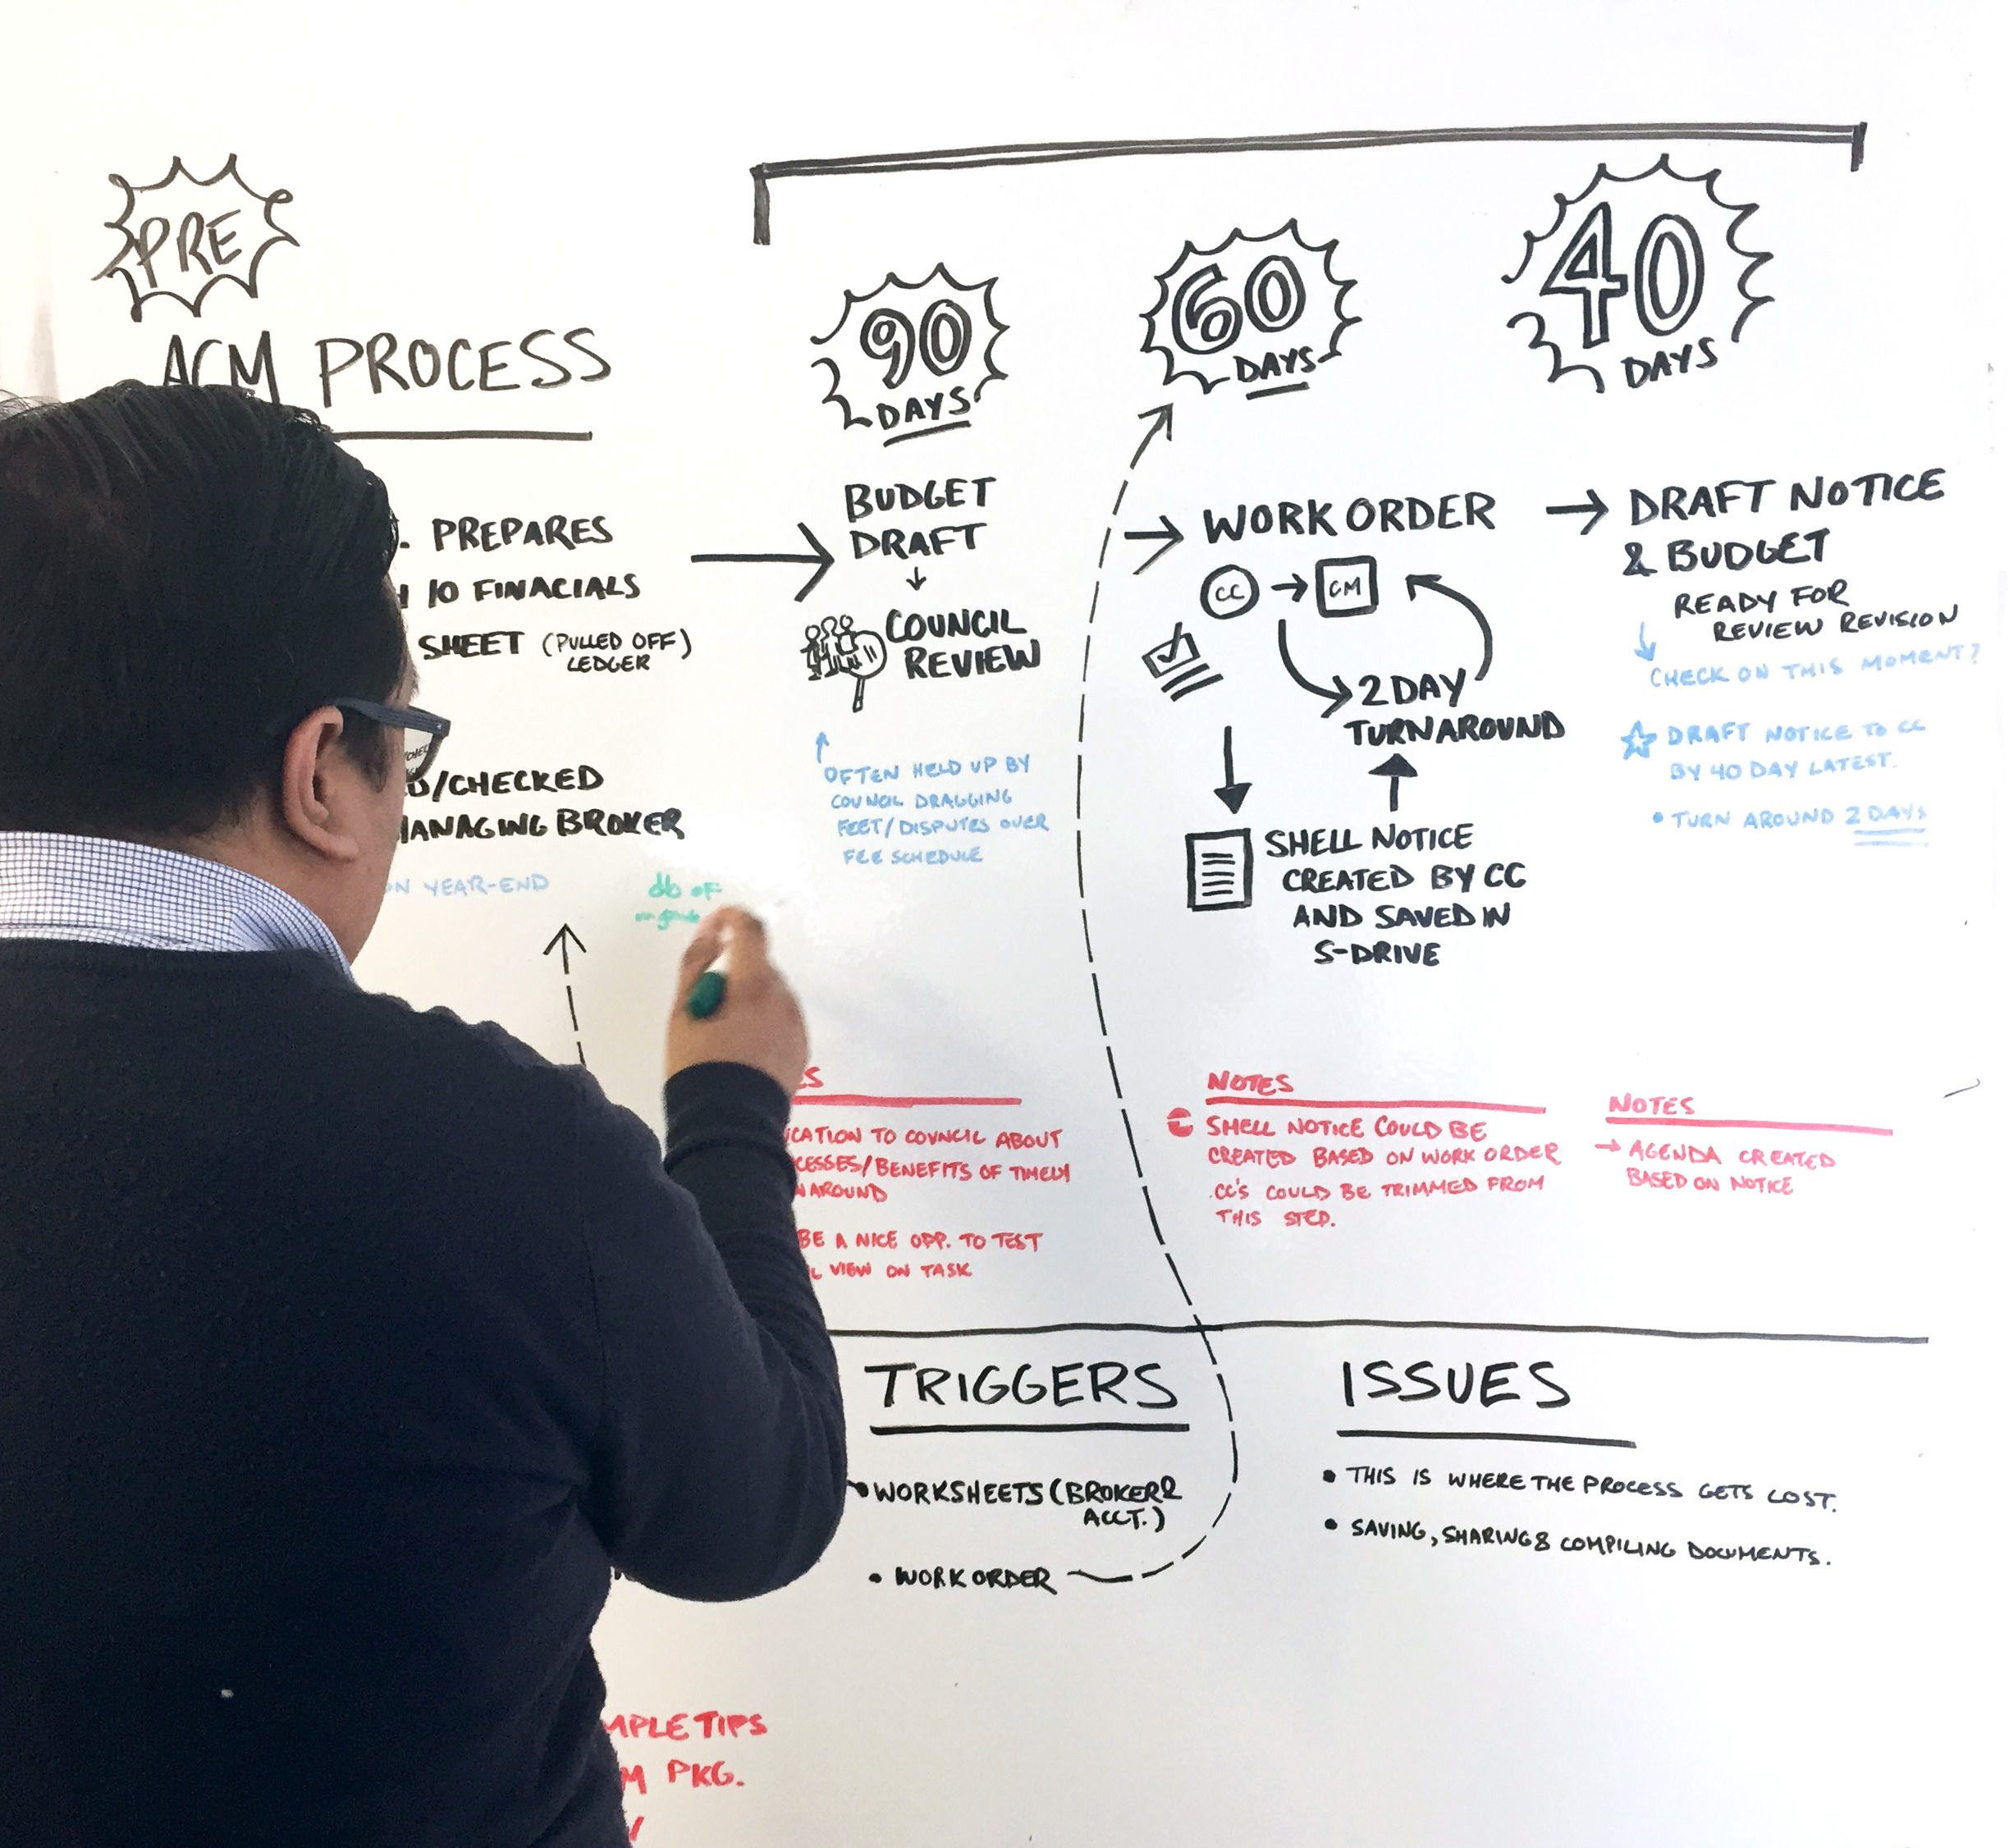 PRE
ACM PROCESS
PREPARES
10 FINACIALS
SHEET (PULLED OFF)
LEDGER
/CHECKED
MANAGING BROKER
YEAR-END
db of
90
DAYS
BUDGET
DRAFT
COUNCIL
REVIEW
OFTEN HELD UP BY
COUNCIL DRAGGING
FEET/DISPUTES OVER
FEE SCHEDULE
TO COUNCIL ABOUT
/BENEFITS OF TIMELY
AROUND
BE A NICE OPP. TO TEST
VIEW ON TASK
60
DAYS
→ WORK ORDER
CC → CM
2 DAY
TURNAROUND
SHELL NOTICE
CREATED BY CC
AND SAVED IN
S-DRIVE
NOTES
SHELL NOTICE COULD BE
CREATED BASED ON WORK ORDER
CC'S COULD BE TRIMMED FROM
THIS STEP.
40
DAYS
→ DRAFT NOTICE
& BUDGET
READY FOR
REVIEW REVISION
CHECK ON THIS MOMENT?
☆ DRAFT NOTICE TO CC
BY 40 DAY LATEST.
• TURN AROUND 2 DAYS
NOTES
→ AGENDA CREATED
BASED ON NOTICE
TRIGGERS
• WORKSHEETS (BROKER &
ACCT.)
• WORK ORDER
ISSUES
• THIS IS WHERE THE PROCESS GETS LOST.
• SAVING, SHARING & COMPILING DOCUMENTS.
TIPS
PKG.